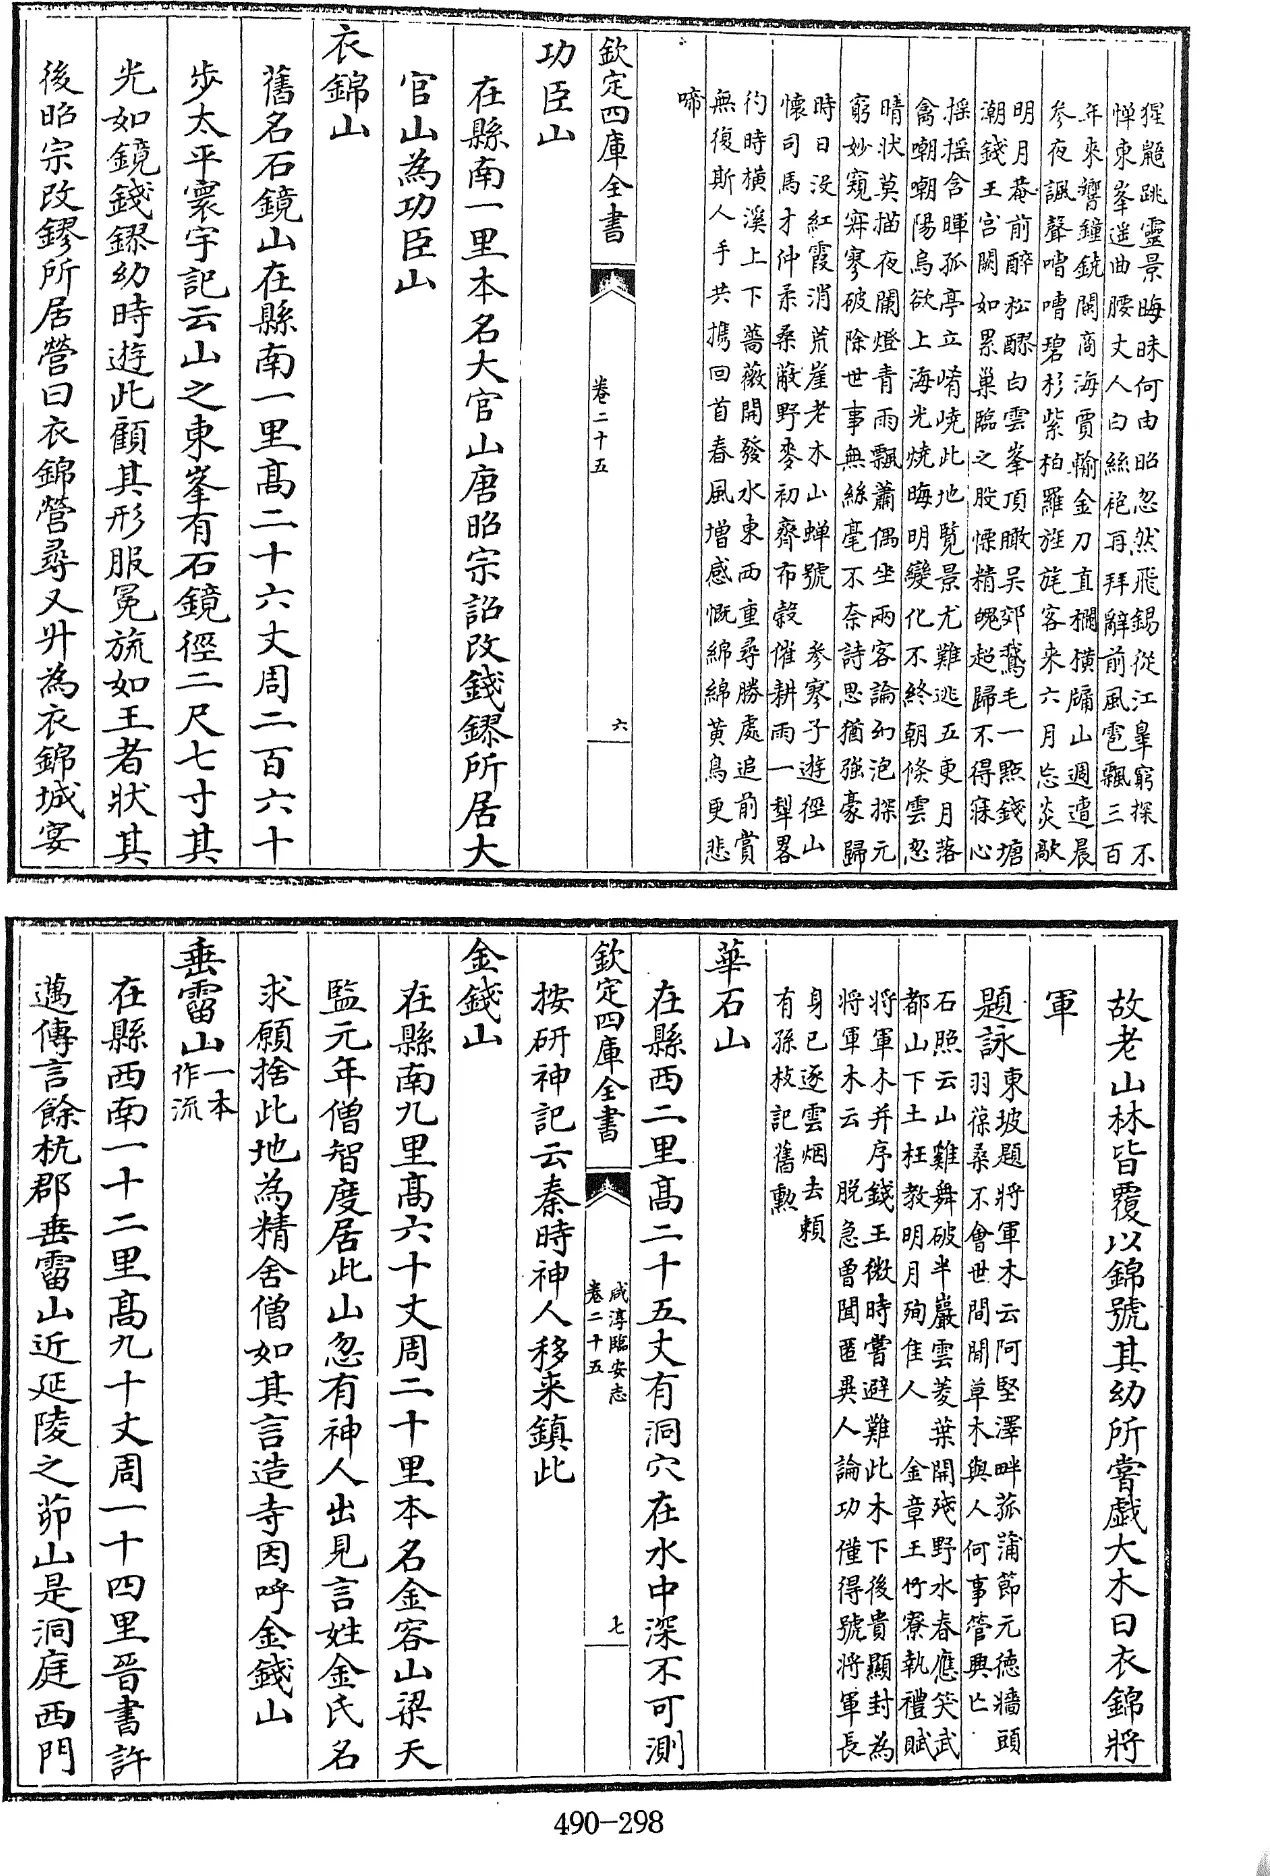 猩鼯跳靈景晦昧何由昭忽然飛錫從江臯窮探不
惮東峯遥曲腰丈人白絲袍再拜辭前風雹飄三百
年來響鐘鋭閩商海賈輸金刀直欄横牗山週遭晨
参夜諷聲嘈嘈碧杉紫柏羅旌旄客来六月忘炎敲
明月菴前醉松醪白雲峯頂瞰吴郊鵞毛一㸃錢塘
潮錢王宫闕如累巢臨之股慄精魄超歸不得寐心
揺揺含暉孤亭立崤嶢此地覧景尤難逃五更月落
禽嘲嘲陽烏欲上海光焼晦明變化不終朝倐雲忽
晴状莫描夜闌燈青雨飄蕭偶坐兩客論幻泡探元
窮妙窺寂寥破除世事無絲毫不奈詩思猶强豪歸
時日没紅霞消荒崖老木山蝉號　参寥子遊徑山
懐司馬才仲柔桑蔽野麥初齊布榖催耕雨一犂畧
彴時横溪上下薔薇開發水東西重尋勝處追前賞
無復斯人手共攜回首春風増感慨綿綿黄鳥更悲
啼
欽定四庫全書
卷二十五
六
功臣山
在縣南一里本名大官山唐昭宗詔改錢鏐所居大
官山為功臣山
衣錦山
舊名石鏡山在縣南一里髙二十六丈周二百六十
步太平寰宇記云山之東峯有石鏡徑二尺七寸其
光如鏡錢鏐幼時遊此顧其形服冕旒如王者狀其
後昭宗改鏐所居營曰衣錦營尋又升為衣錦城宴
故老山林皆覆以錦號其幼所嘗戯大木曰衣錦將
軍
題詠東坡題將軍木云阿堅澤畔菰蒲節元德牆頭
羽葆桑不會世間閒草木與人何事管興亡
石照云山雞舞破半巖雲菱葉開殘野水春應笑武
都山下土枉教明月殉佳人　金章王竹寮執禮賦
將軍木并序錢王微時嘗避難此木下後貴顯封為
將軍木云　脱急曾聞匿異人論功僅得號將軍長
身已逐雲烟去賴
有孫枝記舊勲
華石山
在縣西二里髙二十五丈有洞穴在水中深不可測
欽定四庫全書
咸淳臨安志
卷二十五
七
按研神記云秦時神人移来鎮此
金錢山
在縣南九里髙六十丈周二十里本名金容山梁天
監元年僧智度居此山忽有神人出見言姓金氏名
求願捨此地為精舍僧如其言造寺因呼金錢山
垂霤山一本作流
在縣西南一十二里髙九十丈周一十四里晉書許
邁傳言餘杭郡垂霤山近延陵之茆山是洞庭西門
490-298